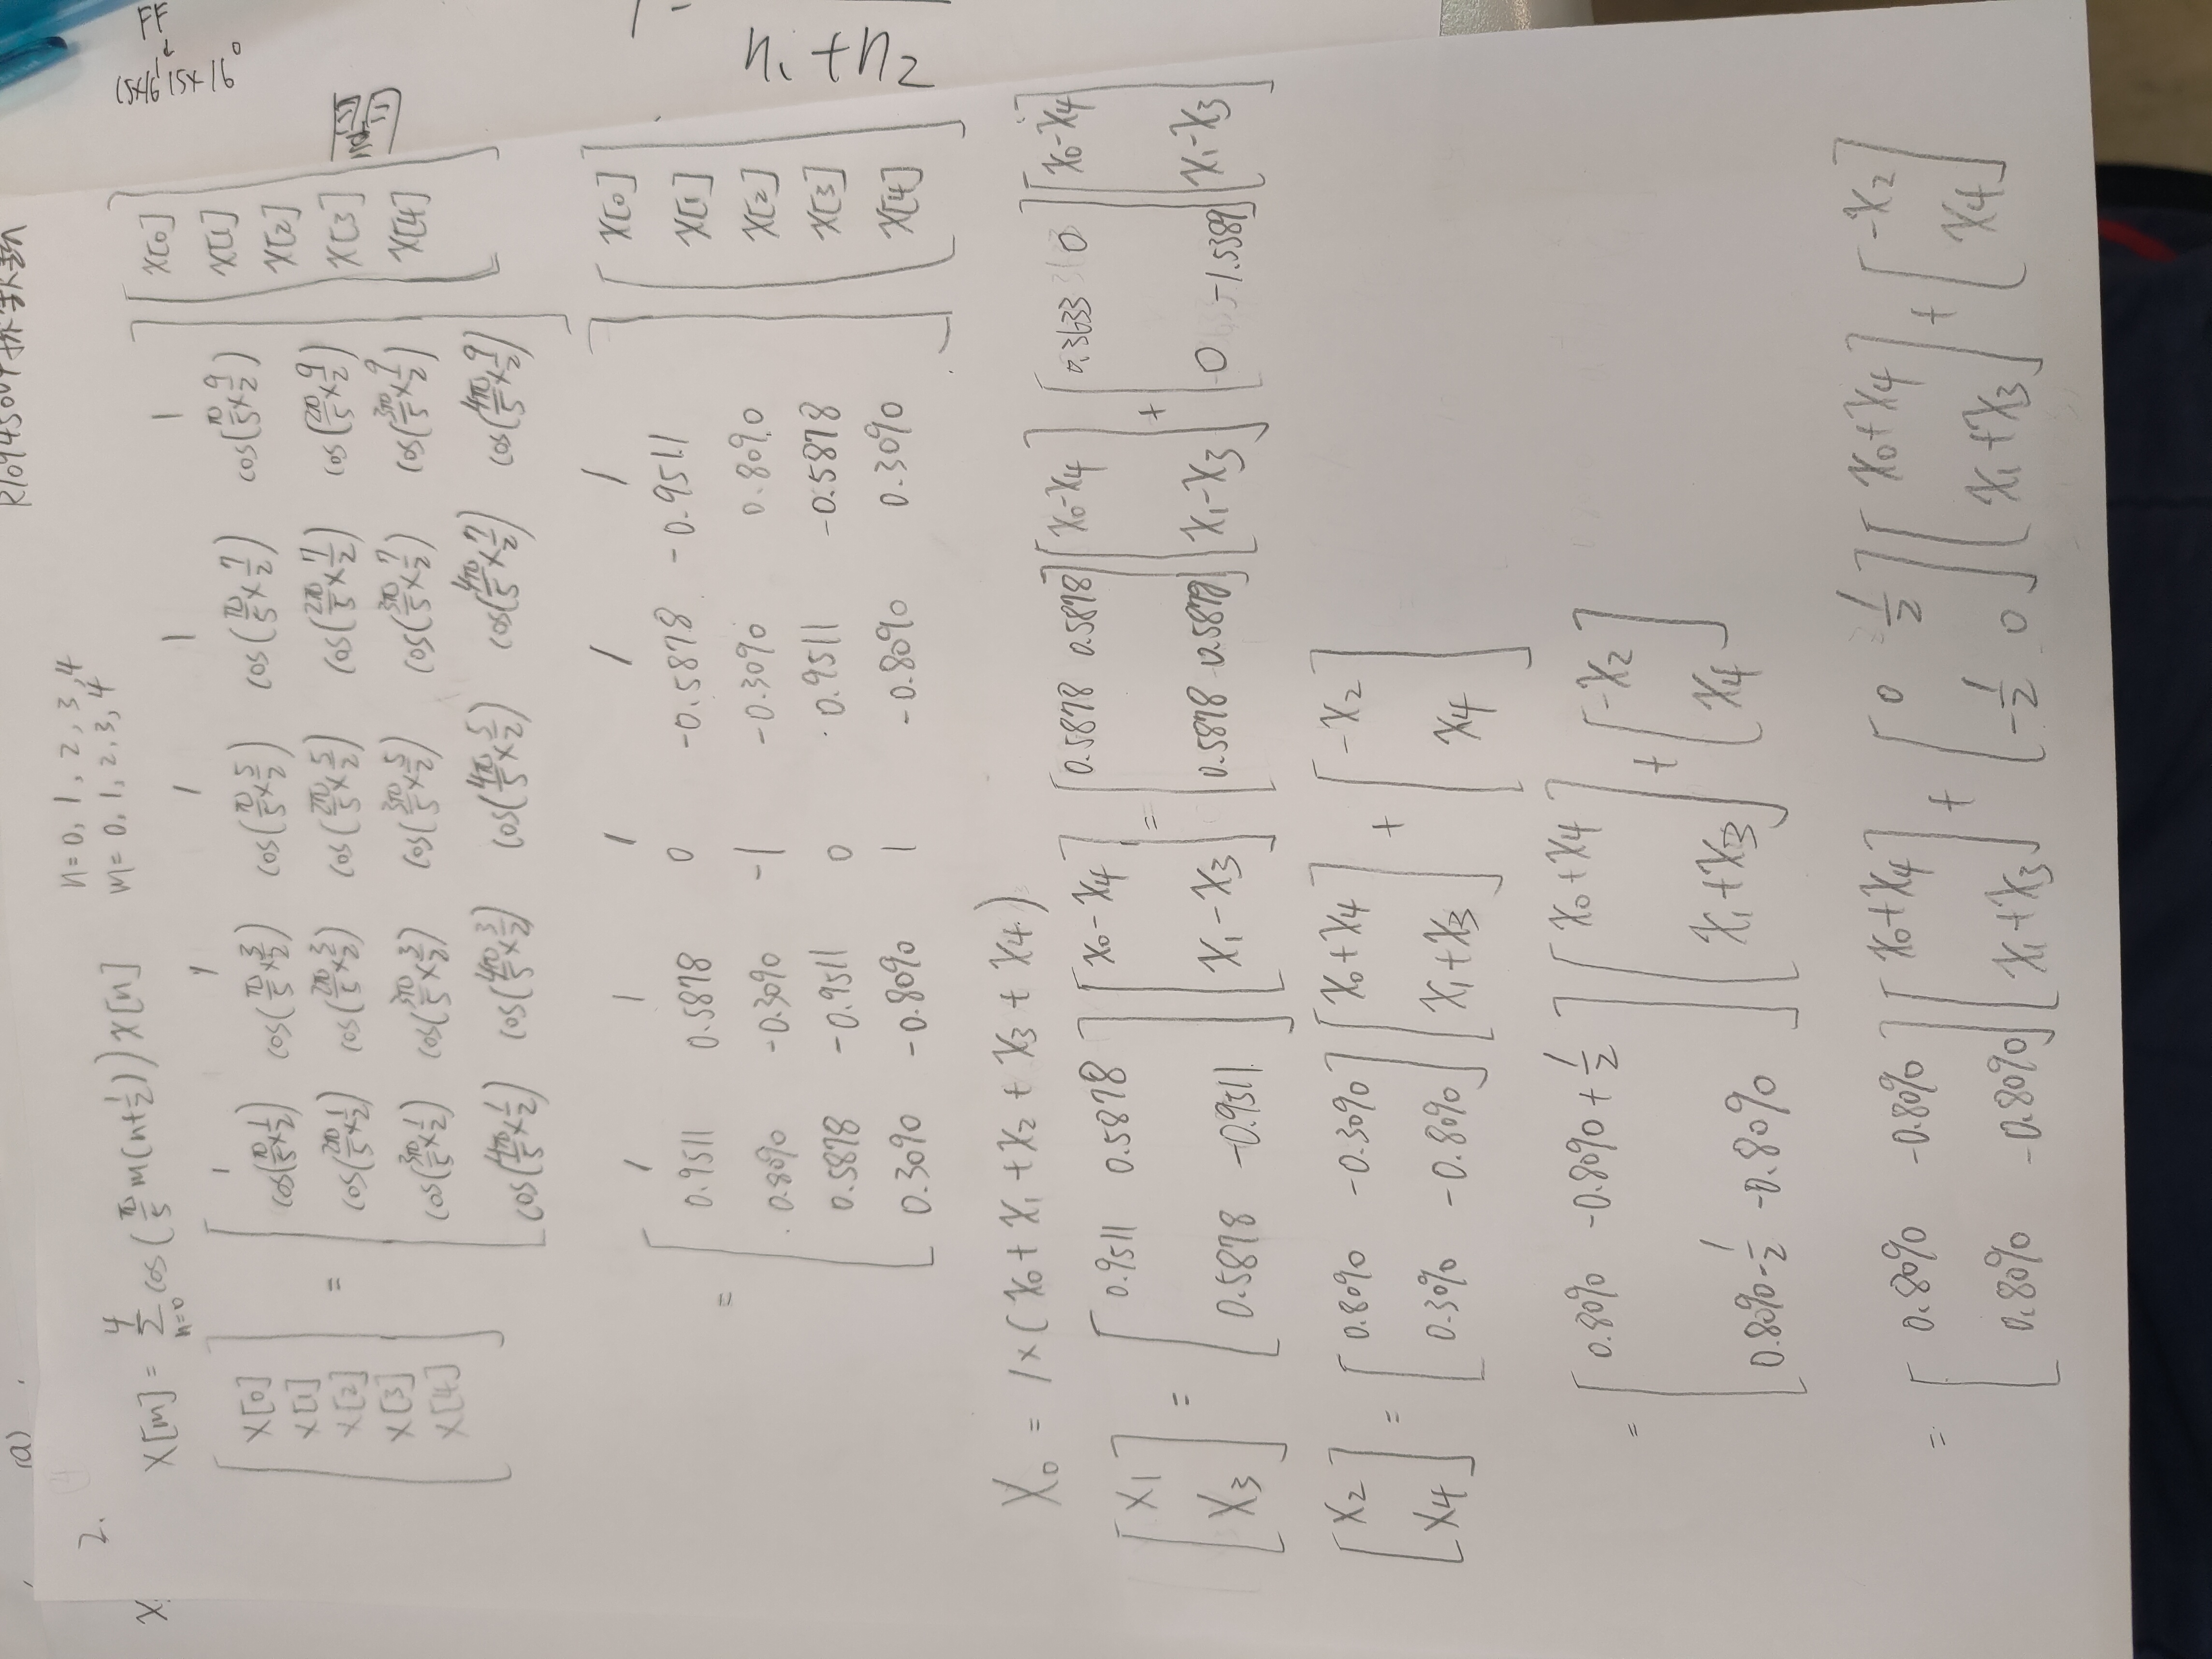 (a)
R10945009
2.
n=0, 1, 2, 3, 4
m=0, 1, 2, 3, 4
X[m] = Σ_{n=0}^{4} cos(π/5 m(n+1/2)) x[n]
[X[0] X[1] X[2] X[3] X[4]] =
[1 1 1 1 1
cos(π/5×1/2) cos(π/5×3/2) cos(π/5×5/2) cos(π/5×7/2) cos(π/5×9/2)
cos(2π/5×1/2) cos(2π/5×3/2) cos(2π/5×5/2) cos(2π/5×7/2) cos(2π/5×9/2)
cos(3π/5×1/2) cos(3π/5×3/2) cos(3π/5×5/2) cos(3π/5×7/2) cos(3π/5×9/2)
cos(4π/5×1/2) cos(4π/5×3/2) cos(4π/5×5/2) cos(4π/5×7/2) cos(4π/5×9/2)] [x[0] x[1] x[2] x[3] x[4]]
= [1 1 1 1 1
0.9511 0.5878 0 -0.5878 -0.9511
0.8090 -0.3090 -1 -0.3090 0.8090
0.5878 -0.9511 0 0.9511 -0.5878
0.3090 -0.8090 1 -0.8090 0.3090] [x[0] x[1] x[2] x[3] x[4]]
X0 = 1×(x0+x1+x2+x3+x4)
[X1 X3] = [0.9511 0.5878 0.5878 -0.9511] [x0-x4 x1-x3] = [0.5878 0.5878 0.5878 0.5878] [x0-x4 x1-x3] + [0.3633 0 0 -1.5389] [x0-x4 x1-x3]
[X2 X4] = [0.8090 -0.3090 0.3090 -0.8090] [x0+x4 x1+x3] + [-x2 x4]
= [0.8090 -0.8090+1/2 0.8090-1/2 -0.8090] [x0+x4 x1+x3] + [-x2 x4]
= [0.8090 -0.8090 0.8090 -0.8090] [x0+x4 x1+x3] + [0 1/2 -1/2 0] [x0+x4 x1+x3] + [-x2 x4]
n1+n2